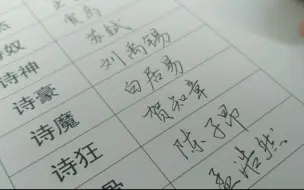 奴 贾岛
诗神 苏轼
诗豪 刘禹锡
诗魔 白居易
诗狂 贺知章
骨 陈子昂
孟浩然